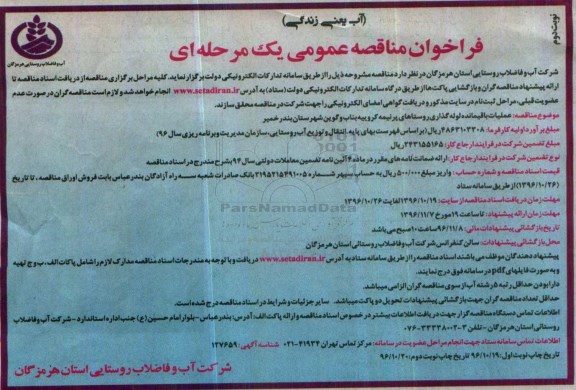 (آب یعنی زندگی)
نوبت دوم
فراخوان مناقصه عمومی یک مرحله ای
شرکت آب و فاضلاب روستایی هرمزگان
شرکت آب و فاضلاب روستایی استان هرمزگان در نظر دارد مناقصه مشروحه ذیل را از طریق سامانه تدارکات الکترونیکی دولت برگزار نماید. کلیه مراحل برگزاری مناقصه از دریافت اسناد مناقصه تا
ارائه پیشنهاد مناقصه گران و بازگشایی پاکت ها از طریق درگاه سامانه تدارکات الکترونیکی دولت (ستاد) به آدرس www.setadiran.ir انجام خواهد شد و لازم است مناقصه گران در صورت عدم
عضویت قبلی، مراحل ثبت نام در سایت مذکور و دریافت گواهی امضای الکترونیکی را جهت شرکت در مناقصه محقق سازند.
موضوع مناقصه: عملیات باقیمانده لوله گذاری روستاهای پرنیمه کروییه بناب و گوین شهرستان بندر خمیر
مبلغ برآورد اولیه کارفرما: ۴۸۶۳۱۰۳۳۰۸ ریال (بر اساس فهرست بهای پایه انتقال و توزیع آب روستایی، سازمان مدیریت و برنامه ریزی سال ۹۶)
مبلغ تضمین شرکت در فرایند ارجاع کار: ۲۴۳۱۵۵۱۶۵ ریال
نوع تضمین شرکت در فرایند ارجاع کار: ارائه ضمانت نامه های مقرر در ماده ۴ آئین نامه تضمین معاملات دولتی سال ۹۴ بشرح مندرج در اسناد مناقصه
قیمت اسناد مناقصه و شماره حساب: واریز مبلغ ۵۰۰/۰۰۰ ریال به حساب سپهر شماره ۲۱۹۵۲۱۵۴۹۱۰۰۵ بانک صادرات شعبه سه راه آزادگان بندرعباس بابت فروش اوراق مناقصه، تا تاریخ
(۱۳۹۶/۱۰/۲۶) از طریق سامانه ستاد
مهلت زمان دریافت اسناد مناقصه از سایت: ۱۳۹۶/۱۰/۱۹ لغایت ۱۳۹۶/۱۰/۲۶
مهلت زمان ارائه پیشنهاد: تا ساعت ۱۹ مورخ ۱۳۹۶/۱۱/۷
تاریخ بازگشائی پیشنهادات مالی: ۹۶/۱۱/۸ ساعت ۱۰ صبح می باشد
محل بازگشائی پیشنهادات: سالن کنفرانس شرکت آب و فاضلاب روستائی استان هرمزگان
پیشنهاد دهندگان موظف می باشند اسناد مناقصه را از طریق سامانه ستاد به آدرس www.setadiran.ir دریافت و با توجه به مندرجات اسناد مناقصه مدارک لازم را شامل پاکات الف، ب و ج تهیه
و به صورت فایلهای pdf در سامانه فوق درج نمایند.
دارا بودن حداقل رتبه ۵ رشته آب از سوی مناقصه گران الزامی میباشد.
حداقل تعداد مناقصه گران جهت بازگشائی پیشنهادات تحویل دو پاکت میباشد. سایر جزئیات و شرایط در اسناد مناقصه درج شده است.
اطلاعات تماس دستگاه مناقصه گزار جهت دریافت اطلاعات بیشتر در خصوص اسناد مناقصه و ارائه پاکت الف: آدرس: بندرعباس-بلوار امام حسین(ع) جنب اداره استاندارد - شرکت آب و فاضلاب
روستائی استان هرمزگان - تلفن ۳-۳۳۳۳۸۰۰۲-۰۷۶
اطلاعات تماس سامانه ستاد جهت انجام مراحل عضویت در سامانه: مرکز تماس تهران ۴۱۹۳۴-۰۲۱ شناسه آگهی: ۱۳۷۶۵۹
تاریخ چاپ نوبت اول: ۹۶/۱۰/۱۹ تاریخ چاپ نوبت دوم: ۹۶/۱۰/۲۰
شرکت آب و فاضلاب روستایی استان هرمزگان
ParsNamadData